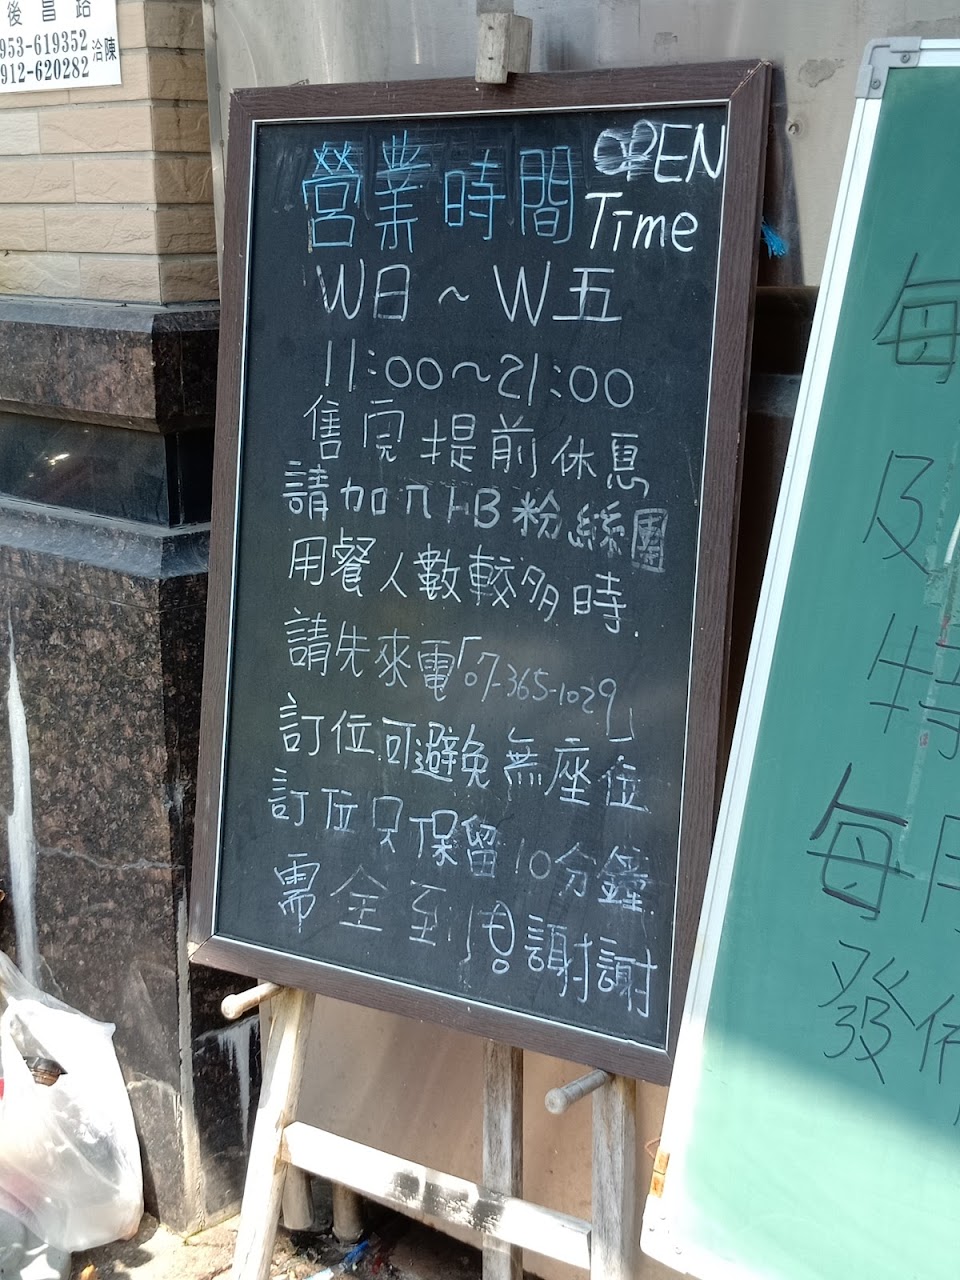 後昌路
0953-619352
0912-620282
洽陳
營業時間 OPEN Time
W日~W五
11:00~21:00
售完提前休息
請加入FB粉絲團
用餐人數較多時
請先來電「07-365-1029」
訂位可避免無座位
訂位只保留10分鐘
需全到
謝謝
每
及
特
每月
發佈